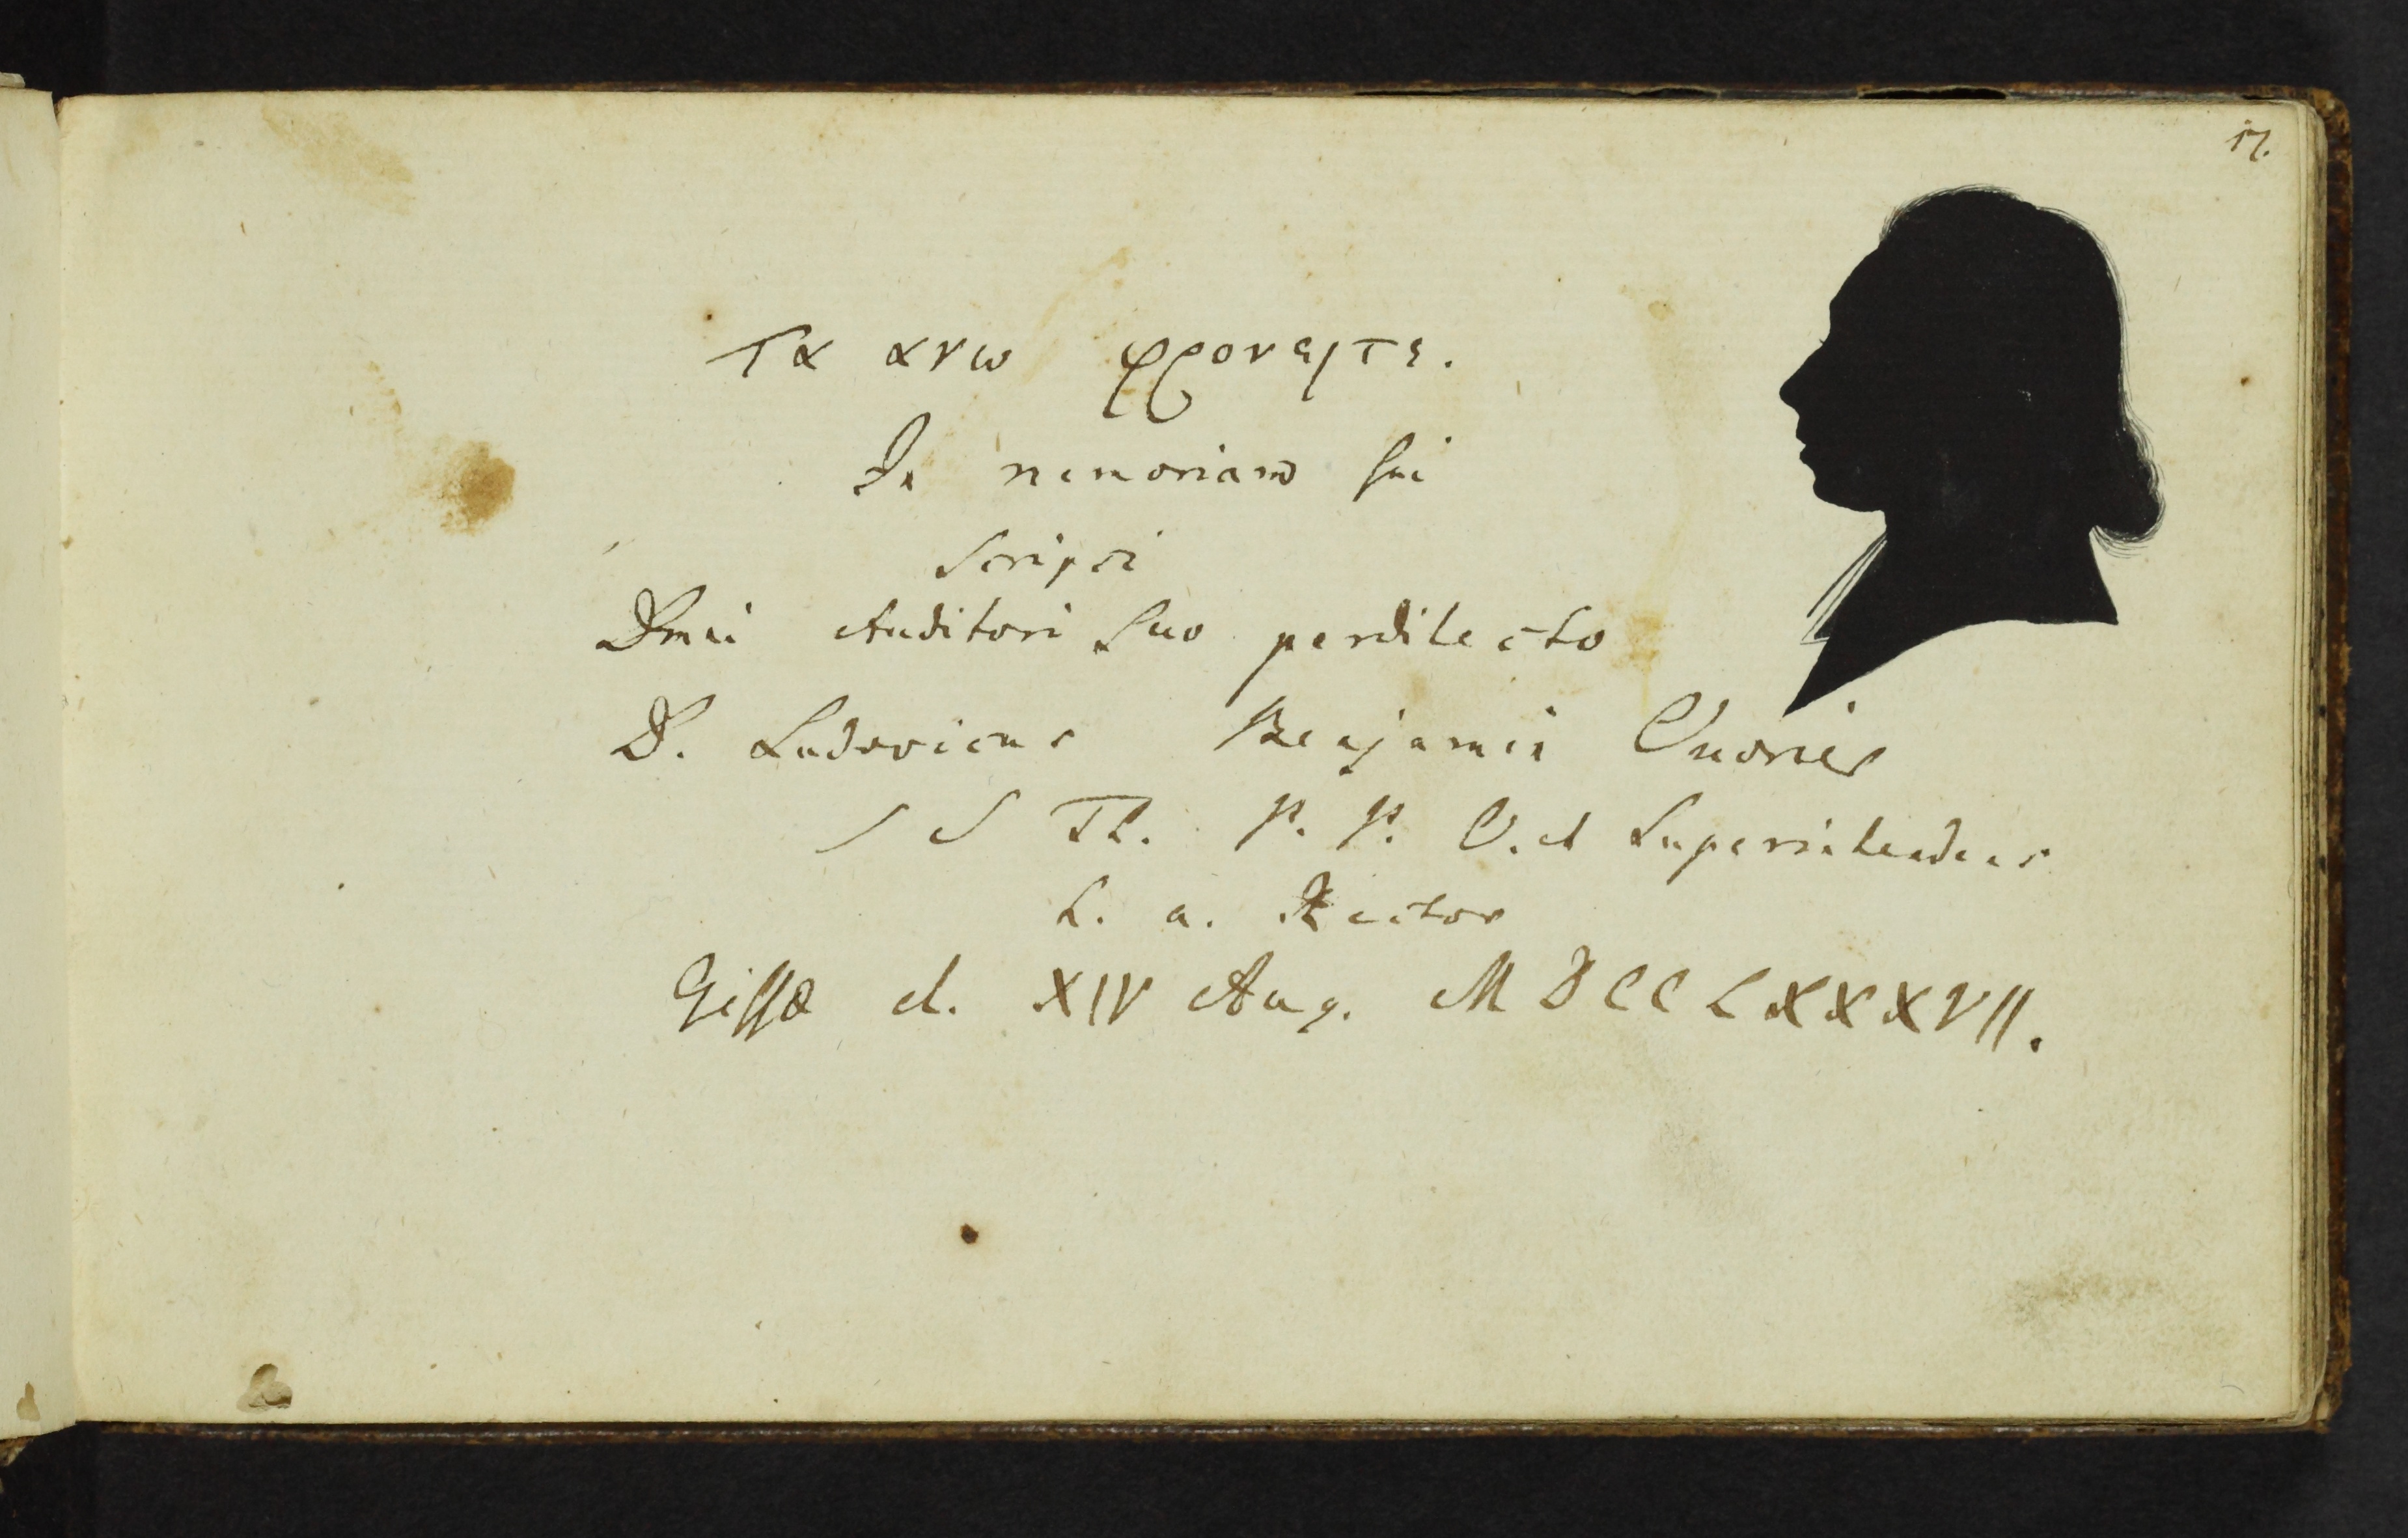 17.
Τα ανω φρονειτε.
In memoriam sui
Scripsi
Dnni Auditori suo perdilecto
D. Ludovicus Benjamin Ouvrier
S S Th. P. P. O. et Superintendens
h. a. Rector
Gissæ d. XIV Aug. MDCCLXXXVII.